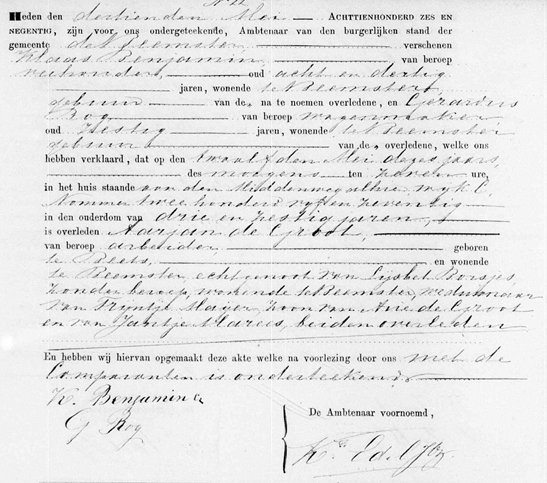 Heden den dertienden Mei ACHTTIENHONDERD ZES EN
NEGENTIG, zijn voor ons ondergeteekende, Ambtenaar van den burgerlijken stand der
gemeente de Beemster verschenen
Klaas Benjamin van beroep
oud acht en dertig
jaren, wonende te Beemster
gebuur van de na te noemen overledene, en Gerardus
Rog van beroep wagenmaker
oud zestig jaren, wonende te Beemster
gebuur van de overledene, welke ons
hebben verklaard, dat op den twaalfden Mei dezes jaars,
des morgens ten zeven ure,
in het huis staande aan den Middenweg alhier wyk C.
Nommer twee honderd vyf en zeventig
in den ouderdom van drie en zestig jaren,
is overleden Aarjan de Groot,
van beroep arbeider, geboren
te Beets, en wonende
te Beemster, echtgenoot van Lijsbet Borsjes,
zonder beroep, wonende te Beemster, weduwnaar
van Trijntje Mayer, zoon van Arie de Groot
en van Jantje Marees, beiden overleden
En hebben wij hiervan opgemaakt deze akte welke na voorlezing door ons met de
Comparanten is onderteekend.
K. Benjamin
G Rog
De Ambtenaar voornoemd,